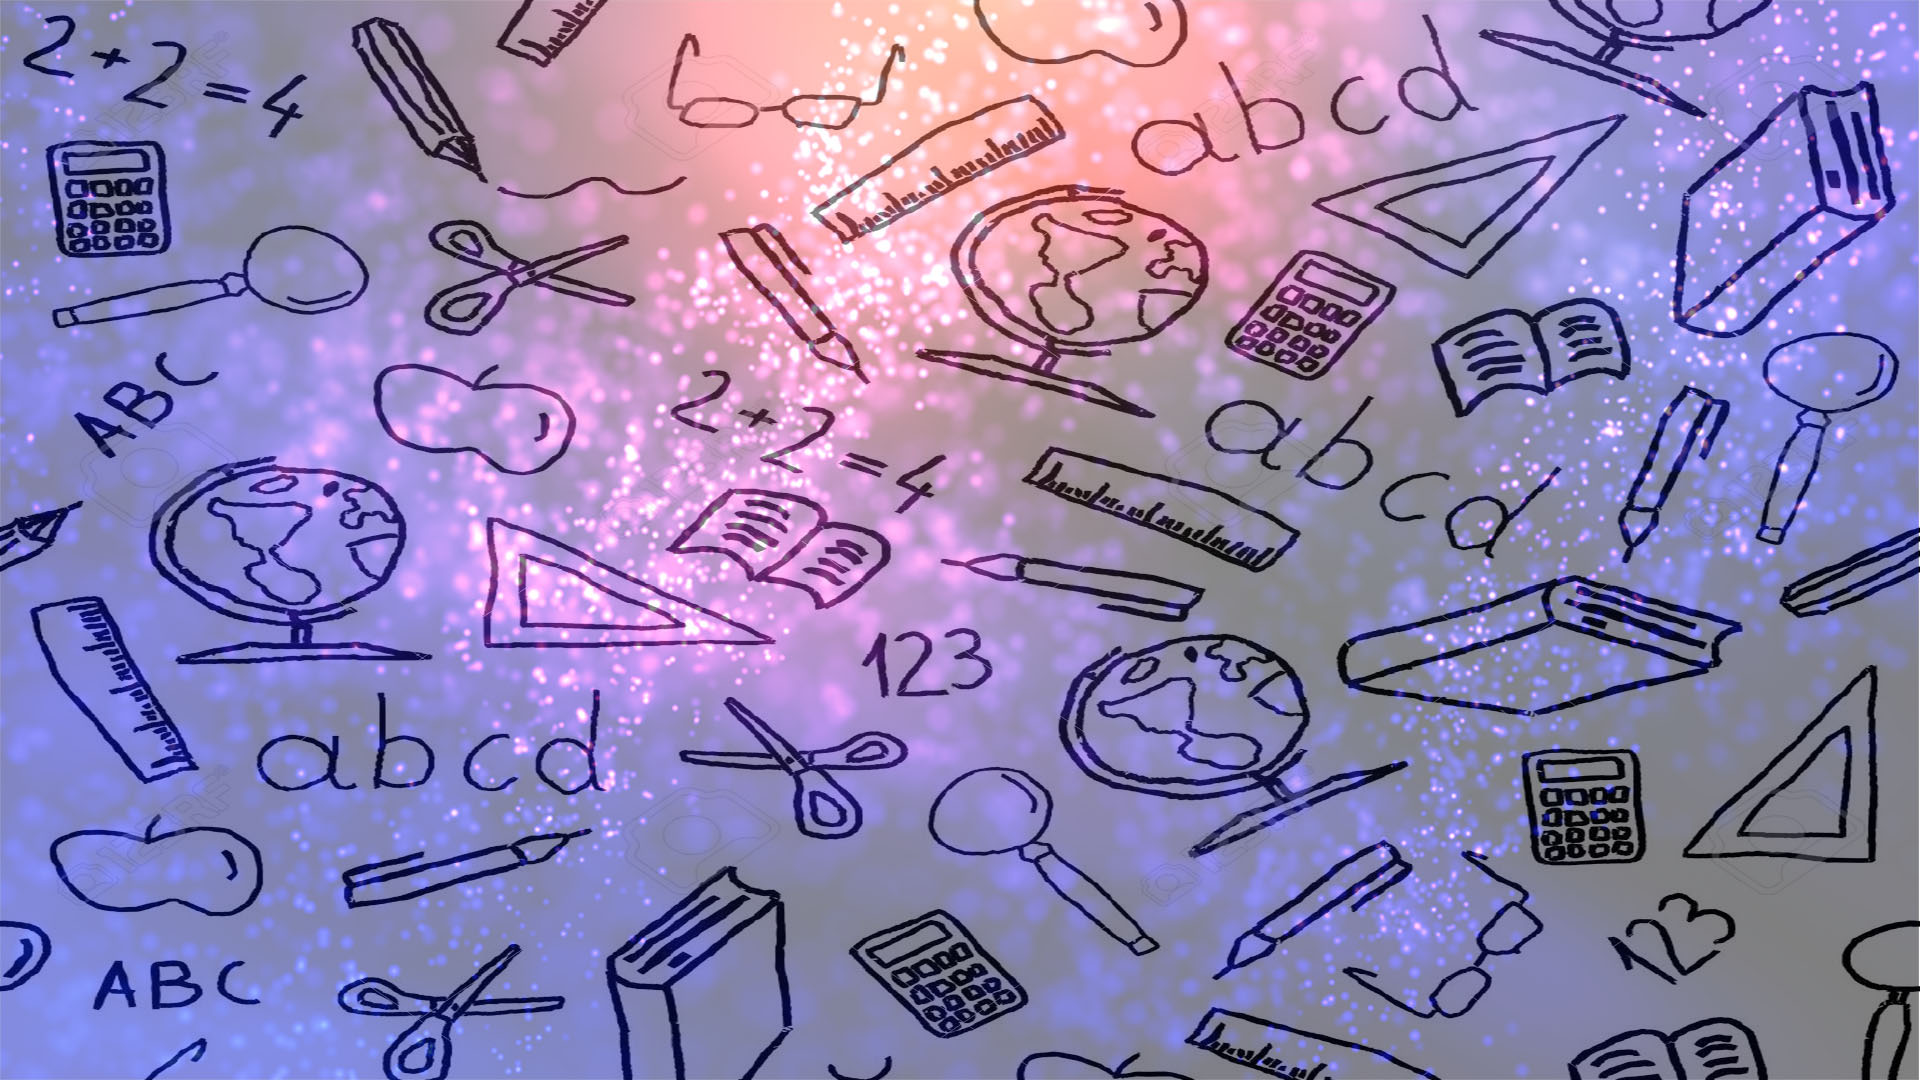 2+2=4
abcd
ABC
2+2=4
abcd
123
abcd
123
ABC